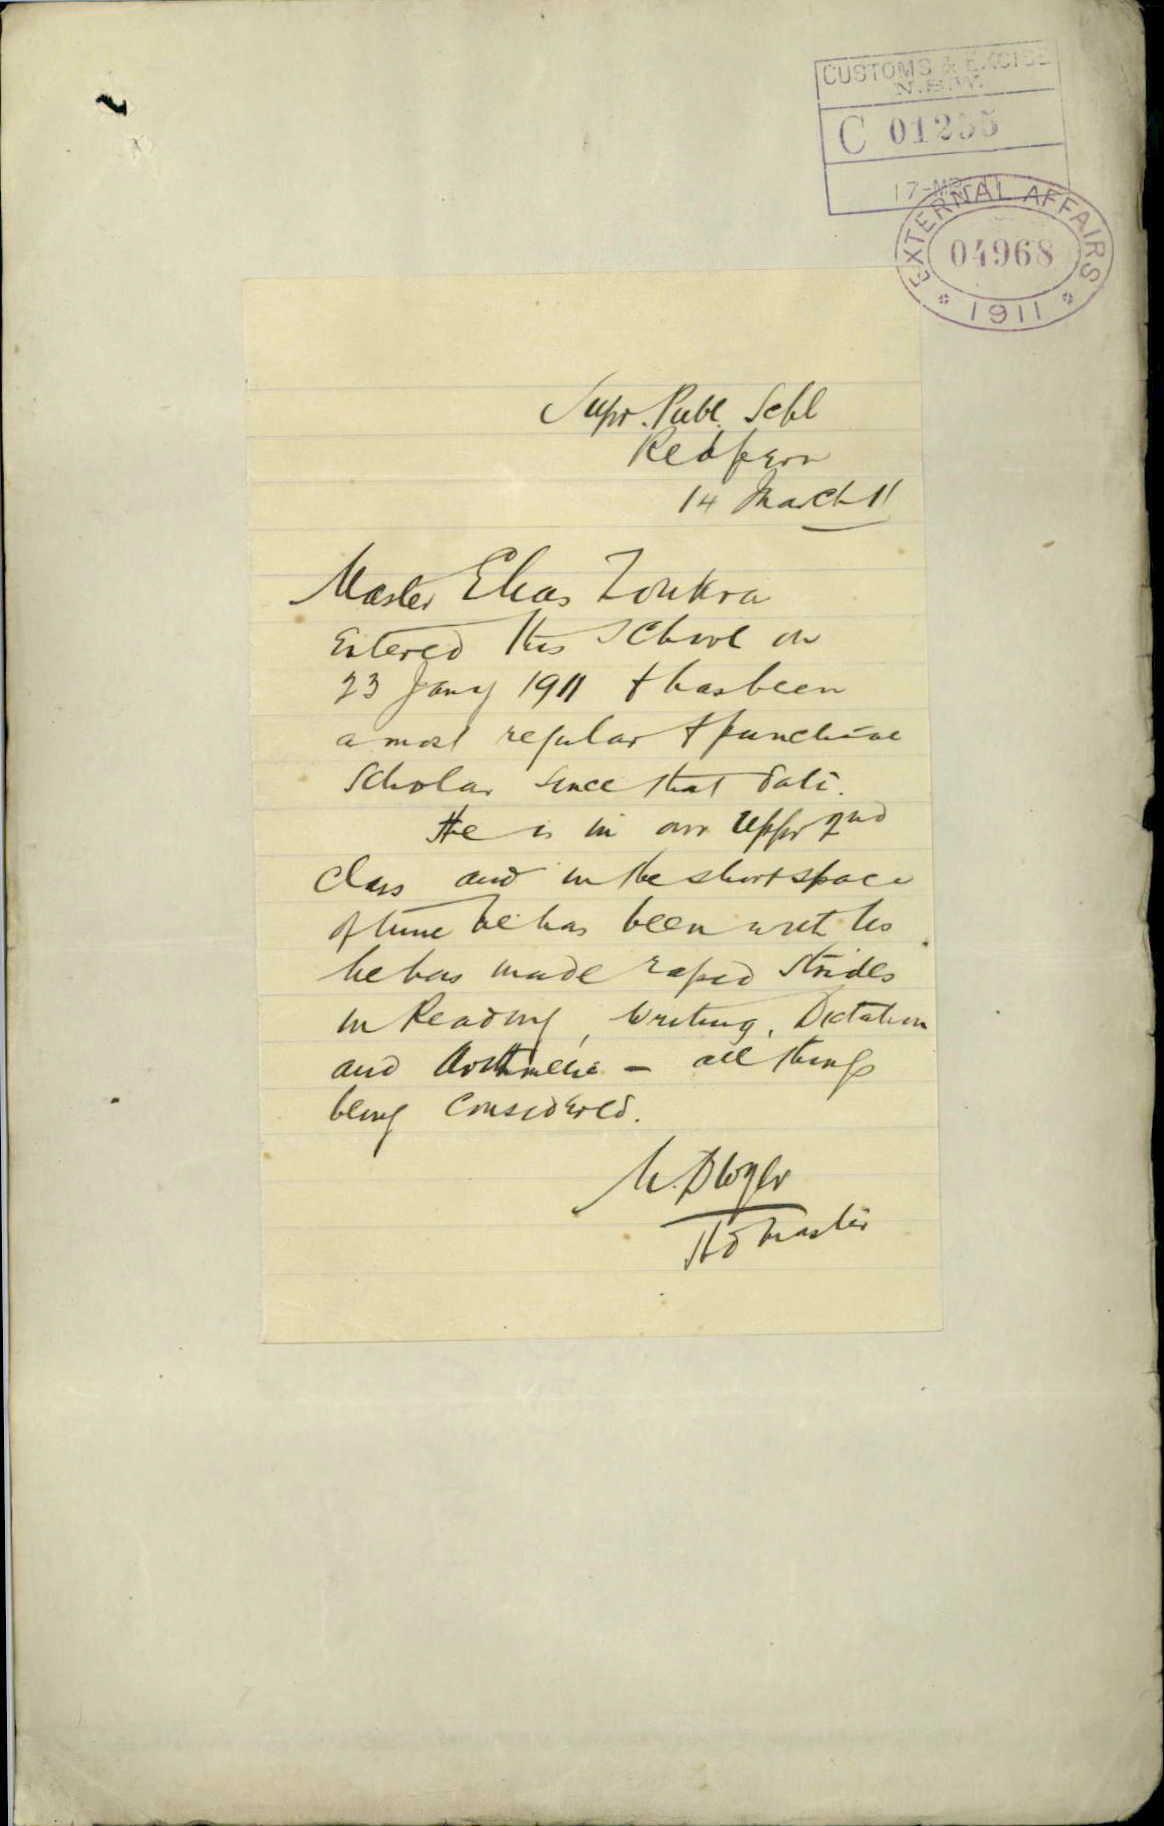 CUSTOMS & EXCISE
N.S.W.
C 01255
17-MR-11
EXTERNAL AFFAIRS
04968
1911
Supr. Publ. Schl
Redfern
14 March 11
Master Elias Zoukra
entered this School on
23 Jany 1911 & has been
a most regular & punctual
Scholar since that date.
He is in our Upper 2nd
Class and in the short space
of time he has been with us
he has made rapid strides
in Reading, Writing, Dictation
and Arithmetic - all things
being considered.
Hd Master